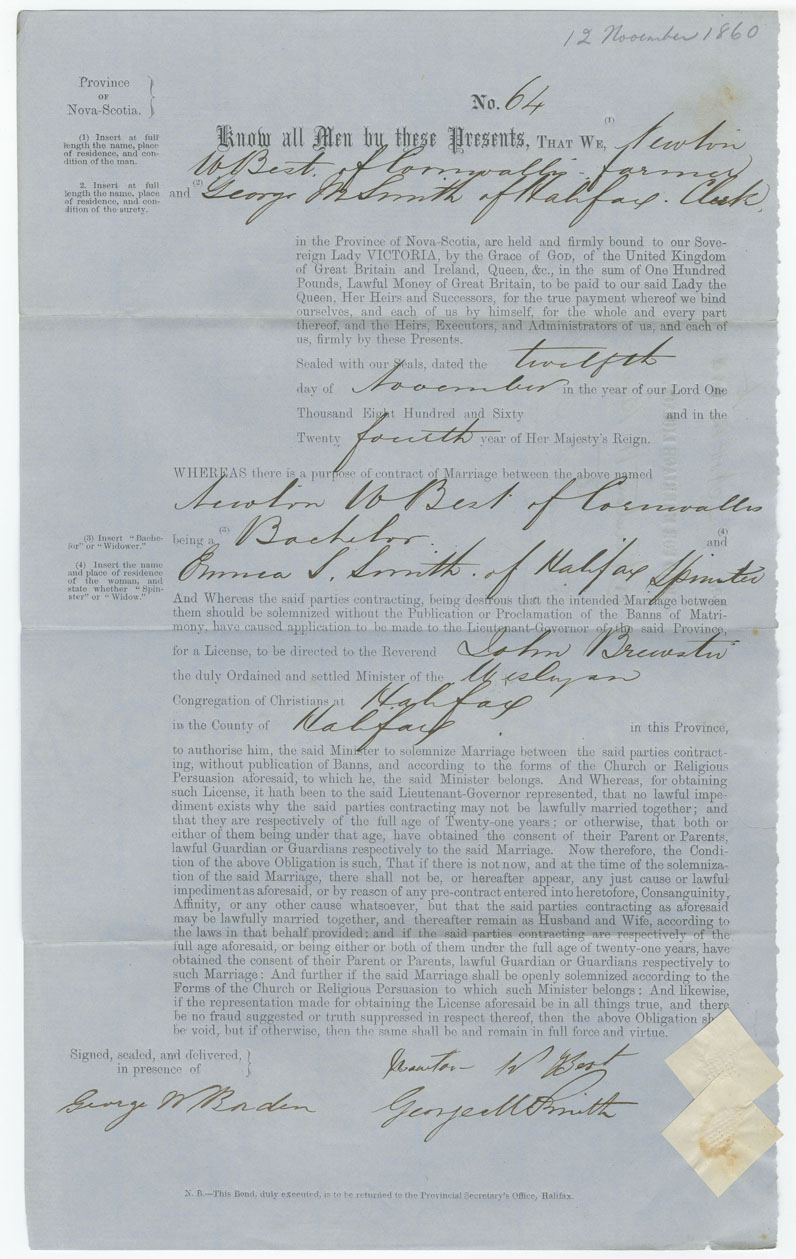 12 November 1860
Province
OF
Nova-Scotia.
No. 64
(1) Insert at full
length the name, place
of residence, and con-
dition of the man.
(1)
Know all Men by these Presents, THAT WE, Newton
W Best. of Cornwallis farmer
2. Insert at full
length the name, place
of residence, and con-
dition of the surety.
and (2) George M Smith of Halifax. Clerk.
in the Province of Nova-Scotia, are held and firmly bound to our Sove-
reign Lady VICTORIA, by the Grace of GOD, of the United Kingdom
of Great Britain and Ireland, Queen, &c., in the sum of One Hundred
Pounds, Lawful Money of Great Britain, to be paid to our said Lady the
Queen, Her Heirs and Successors, for the true payment whereof we bind
ourselves, and each of us by himself, for the whole and every part
thereof, and the Heirs, Executors, and Administrators of us, and each of
us, firmly by these Presents.
Sealed with our Seals, dated the twelfth
day of November in the year of our Lord One
Thousand Eight Hundred and Sixty and in the
Twenty fourth year of Her Majesty's Reign.
WHEREAS there is a purpose of contract of Marriage between the above named
Newton W Best of Cornwallis
(3) Insert "Bache-
lor" or "Widower."
being a (3) Bachelor. (4) and
(4) Insert the name
and place of residence
of the woman, and
state whether "Spin-
ster" or "Widow."
Emma S. Smith. of Halifax Spinster
And Whereas the said parties contracting, being desirous that the intended Marriage between
them should be solemnized without the Publication or Proclamation of the Banns of Matri-
mony, have caused application to be made to the Lieutenant-Governor of the said Province,
for a License, to be directed to the Reverend John Brewster
the duly Ordained and settled Minister of the Wesleyan
Congregation of Christians at Halifax
in the County of Halifax. in this Province,
to authorise him, the said Minister to solemnize Marriage between the said parties contract-
ing, without publication of Banns, and according to the forms of the Church or Religious
Persuasion aforesaid, to which he, the said Minister belongs. And Whereas, for obtaining
such License, it hath been to the said Lieutenant-Governor represented, that no lawful impe-
diment exists why the said parties contracting may not be lawfully married together; and
that they are respectively of the full age of Twenty-one years; or otherwise, that both or
either of them being under that age, have obtained the consent of their Parent or Parents,
lawful Guardian or Guardians respectively to the said Marriage. Now therefore, the Condi-
tion of the above Obligation is such, That if there is not now, and at the time of the solemniza-
tion of the said Marriage, there shall not be, or hereafter appear, any just cause or lawful
impediment as aforesaid, or by reason of any pre-contract entered into heretofore, Consanguinity,
Affinity, or any other cause whatsoever, but that the said parties contracting as aforesaid
may be lawfully married together, and thereafter remain as Husband and Wife, according to
the laws in that behalf provided; and if the said parties contracting are respectively of the
full age aforesaid, or being either or both of them under the full age of twenty-one years, have
obtained the consent of their Parent or Parents, lawful Guardian or Guardians respectively to
such Marriage: And further if the said Marriage shall be openly solemnized according to the
Forms of the Church or Religious Persuasion to which such Minister belongs: And likewise,
if the representation made for obtaining the License aforesaid be in all things true, and there
be no fraud suggested or truth suppressed in respect thereof, then the above Obligation
be void, but if otherwise, then the same shall be and remain in full force and virtue.
Signed, sealed, and delivered,
in presence of
Newton W Best
George W Borden
George M Smith
N. B.—This Bond, duly executed, is to be returned to the Provincial Secretary's Office, Halifax.